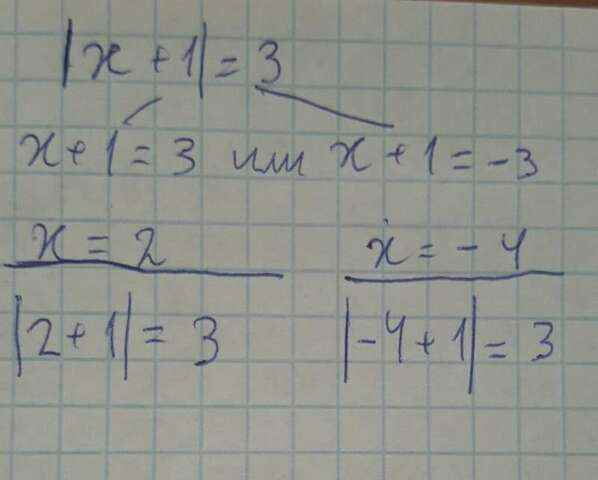 |x+1|=3
x+1=3 или x+1=-3
x=2 x=-4
|2+1|=3 |-4+1|=3